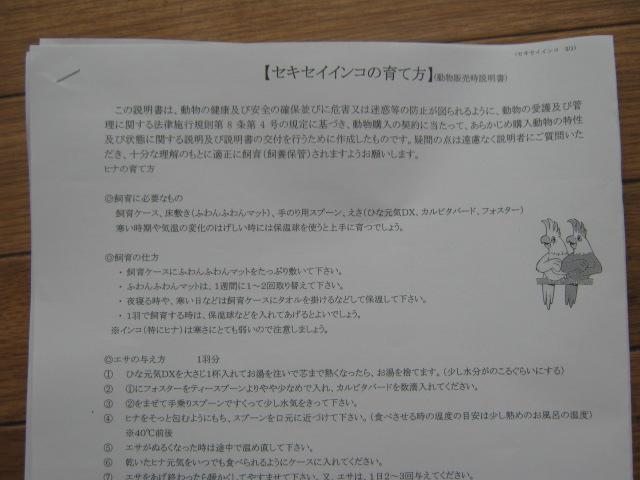 (セキセイインコ 3/3)
【セキセイインコの育て方】(動物販売時説明書)
この説明書は、動物の健康及び安全の確保並びに危害又は迷惑等の防止が図られるように、動物の愛護及び管
理に関する法律施行規則第8条第4号の規定に基づき、動物購入の契約に当たって、あらかじめ購入動物の特性
及び状態に関する説明及び説明書の交付を行うために作成したものです。疑問の点は遠慮なく説明者にご質問いた
だき、十分な理解のもとに適正に飼育(飼養保管)されますようお願いします。
ヒナの育て方
◎飼育に必要なもの
飼育ケース、床敷き(ふわんふわんマット)、手のり用スプーン、えさ(ひな元気DX、カルビタバード、フォスター)
寒い時期や気温の変化のはげしい時には保温球を使うと上手に育つでしょう。
◎飼育の仕方
・飼育ケースにふわんふわんマットをたっぷり敷いて下さい。
・ふわんふわんマットは、1週間に1～2回取り替えて下さい。
・夜寝る時や、寒い日などは飼育ケースにタオルを掛けるなどして保温して下さい。
・1羽で飼育する時は、保温球などを入れてあげるとよいでしょう。
※インコ(特にヒナ)は寒さにとても弱いので注意しましょう。
◎エサの与え方 1羽分
① ひな元気DXを大さじ1杯入れてお湯を注いで芯まで熱くなったら、お湯を捨てます。(少し水分がのこるぐらいにする)
② ①にフォスターをティースプーンよりやや少なめで入れ、カルビタバードを数滴入れてください。
③ ②をまぜて手乗りスプーンですくって少し水気をきって下さい。
④ ヒナをそっと包むようにもち、スプーンを口元に近づけて下さい。(食べさせる時の温度の目安は少し熱めのお風呂の温度)
※40℃前後
⑤ エサがぬるくなった時は途中で温め直して下さい。
⑥ 乾いたヒナ元気をいつでも食べられるようにケースに入れてください。
⑦ エサをあげ終わったら暖かくしてやすませて下さい。又、エサは、1日2～3回与えてください。